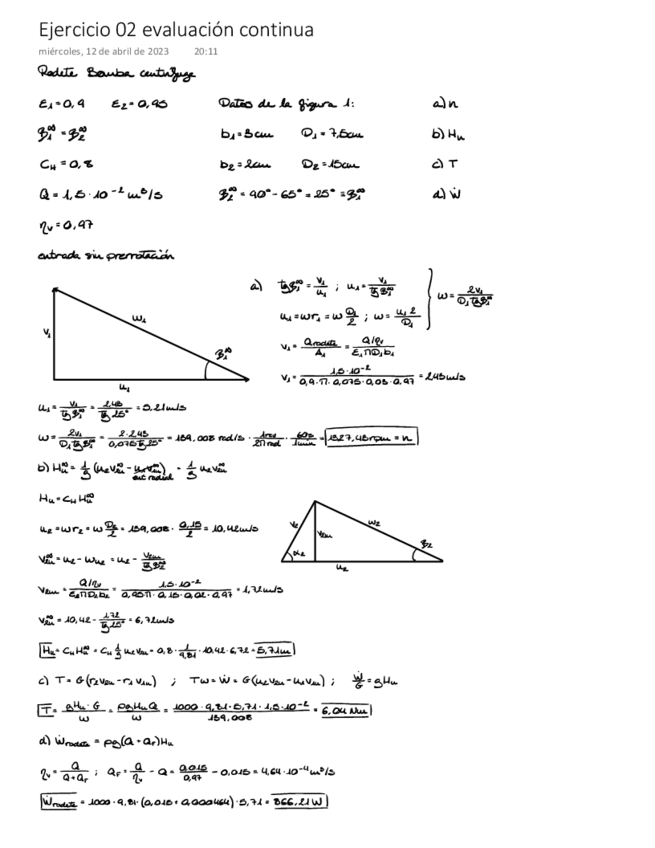 Ejercicio 02 evaluación continua
miércoles, 12 de abril de 2023 20:11
Rodete Bomba centrífuga
ε1=0,9 ε2=0,95 Datos de la figura 1: a) n
β1^∞ = β2^∞ b1=3cm D1=7,5cm b) Hu
CH=0,8 b2=2cm D2=15cm c) T
Q=1,5·10^-2 m³/s β2^∞ = 90°-65° = 25° = β1^∞ d) Ẇ
ηv=0,97
entrada sin prerrotación
a) tg β1^∞ = v1/u1 ; u1 = v1/tg β1^∞
u1 = ωr1 = ω D1/2 ; ω = u1 2/D1 } ω = 2v1/(D1 tg β1^∞)
v1 = Qrodete/A1 = (Q/ηv)/(ε1 Π D1 b1)
v1 = 1,5·10^-2/(0,9·Π·0,075·0,03·0,97) = 2,43m/s
v1 w1 β1^∞ u1
u1 = v1/tg β1^∞ = 2,43/tg 25° = 5,21m/s
ω = 2v1/(D1 tg β1^∞) = 2·2,43/(0,075 tg 25°) = 139,008 rad/s · 1rev/2Πrad · 60s/1min = 1327,43rpm = n
b) Hu^∞ = 1/g (u2v2u^∞ - u1v1u^∞) = 1/g u2v2u^∞
ent radial
Hu = CH Hu^∞
u2 = ωr2 = ω D2/2 = 139,008 · 0,15/2 = 10,42m/s
v2u^∞ = u2 - wu2 = u2 - v2m/tg β2^∞
v2 v2m w2 α2 β2 u2
v2m = (Q/ηv)/(ε2 Π D2 b2) = 1,5·10^-2/(0,95Π·0,15·0,02·0,97) = 1,72m/s
v2u^∞ = 10,42 - 1,72/tg 25° = 6,72m/s
Hu = CH Hu^∞ = CH 1/g u2 v2u = 0,8 · 1/9,81 · 10,42 · 6,72 = 5,71m
c) T = G(r2v2u - r1v1u) ; Tω = Ẇ = G(u2v2u - u1v1u) ; Ẇ/G = gHu
T = gHu·G/ω = ρgHuQ/ω = 1000·9,81·5,71·1,5·10^-2/139,008 = 6,04Nm
d) Ẇrodete = ρg(Q+Qf)Hu
ηv = Q/(Q+Qf) ; Qf = Q/ηv - Q = 0,015/0,97 - 0,015 = 4,64·10^-4 m³/s
Ẇrodete = 1000·9,81·(0,015+0,000464)·5,71 = 866,21W